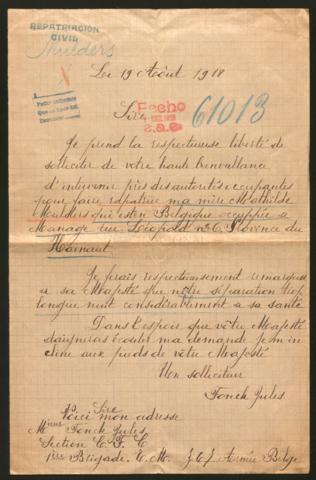 REPATRIACION
CIVIL
Mulders
Le 19 Août 1918
Sire
Fecho
61013
Je prend la respectueuse liberté de
solliciter de votre haute bienveillance
d'intervenir près des autorités occupantes
pour faire rapatrier ma mère Mathilde
Mulders qui est en Belgique occupée a
Manage rue Léopold no 6 Province du
Hainaut
Je ferais respectueusement remarquer
a sa Majesté que notre séparation trop
longue nuit considérablement a sa santé
Dans l'espoir que vôtre Majesté
daignera écouter ma demande je m'in
cline aux pieds de vôtre Majesté
Un solliciteur
Fonck Jules
Sire
Voici mon adresse
Fonck Jules
Section C. F. C
1ère Brigade Armée Belge